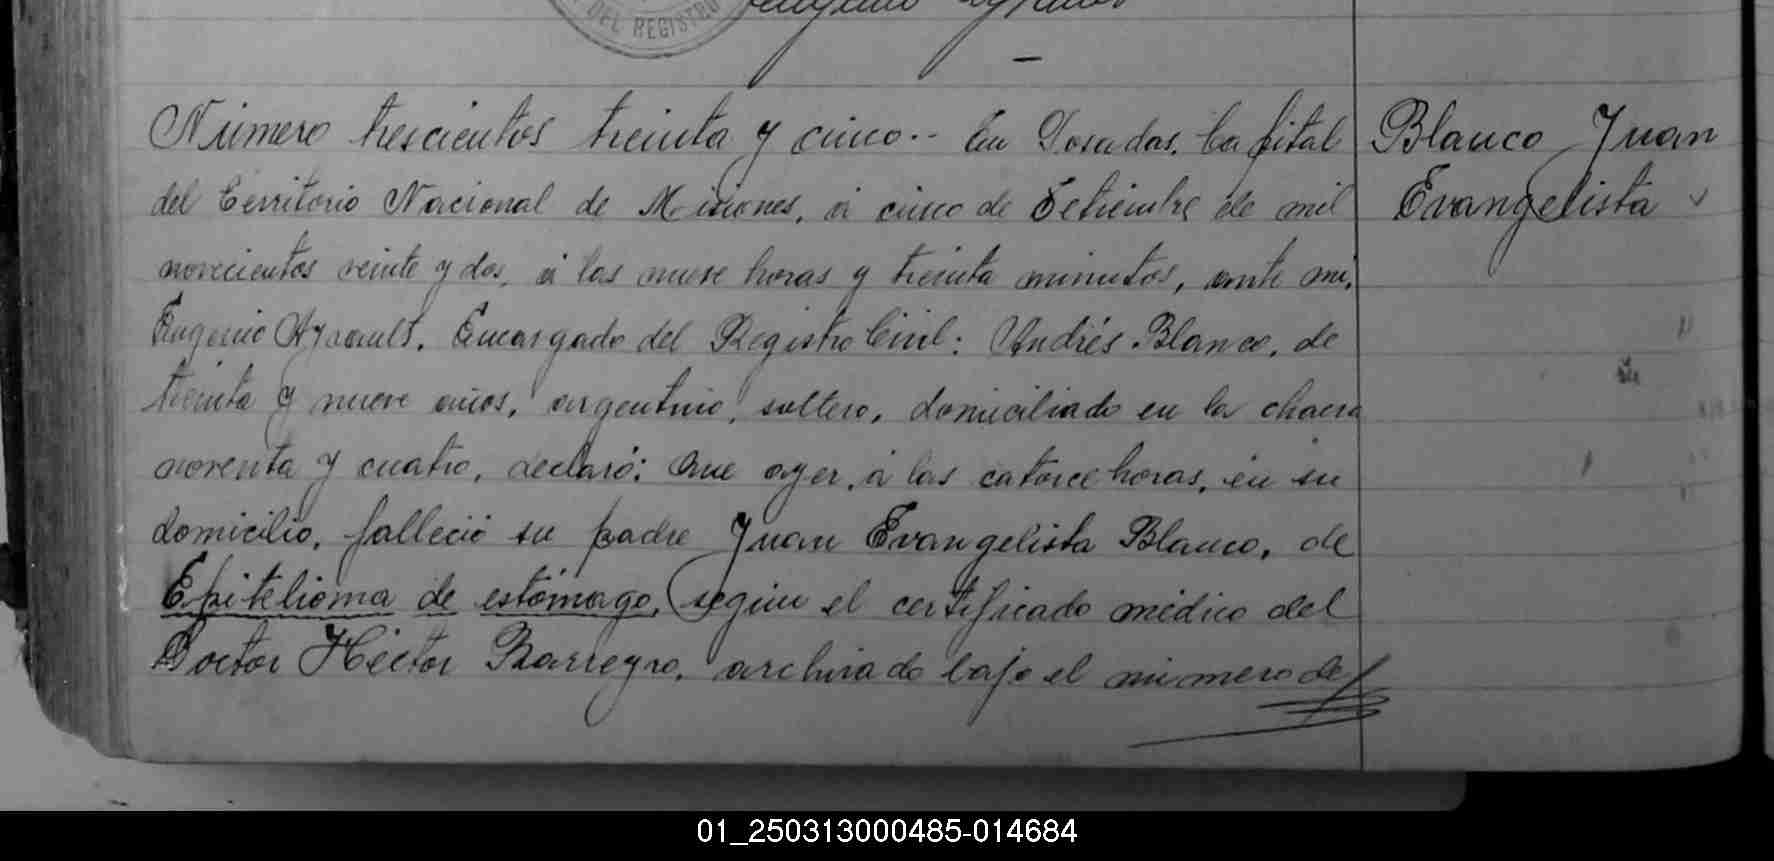 DEL REGISTRO
Número trescientos treinta y cinco.- En Posadas, Capital
del Territorio Nacional de Misiones, á cinco de Setiembre de mil
novecientos veinte y dos, á las nueve horas y treinta minutos, ante mi,
Eugenio Ayrault, Encargado del Registro Civil: Andrés Blanco, de
treinta y nueve años, argentino, soltero, domiciliado en la chacra
noventa y cuatro, declaró: Que ayer, á las catorce horas, en su
domicilio, falleció su padre Juan Evangelista Blanco, de
Epitelioma de estómago, según el certificado médico del
Doctor Héctor Barreyro, archivado bajo el número de
Blanco Juan
Evangelista
01_250313000485-014684